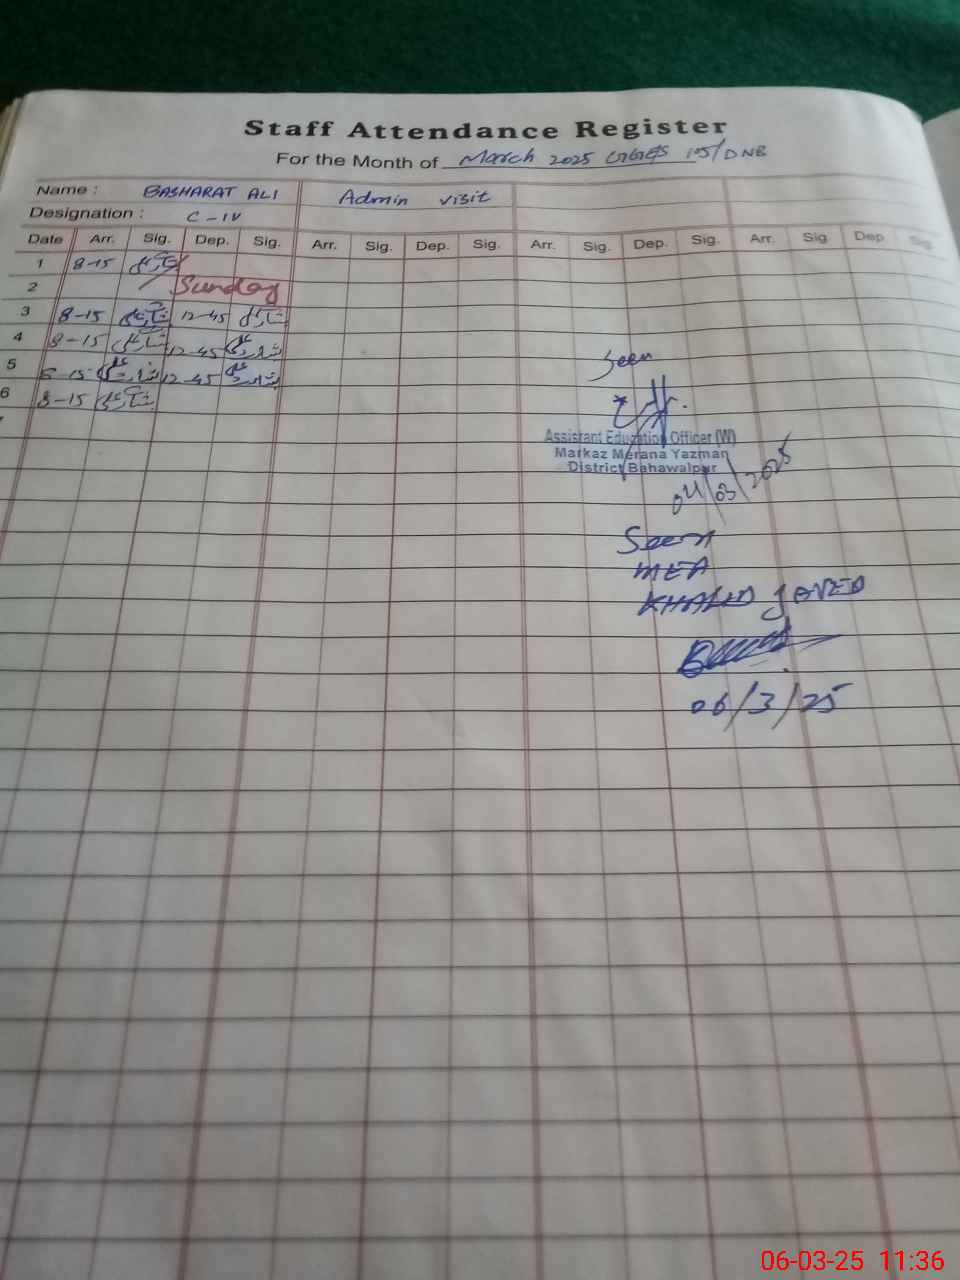 Staff Attendance Register
For the Month of March 2025 GGES 105/DNB
Name : BASHARAT ALI Admin visit
Designation : C-IV
Date Arr. Sig. Dep. Sig. Arr. Sig. Dep. Sig. Arr. Sig. Dep. Sig. Arr. Sig. Dep. Sig.
1 8-15 بشارت علی
2 Sunday
3 8-15 بشارت علی 12-45 بشارت علی
4 8-15 بشارت علی 12-45 بشارت علی
5 8-15 بشارت علی 12-45 بشارت علی
6 8-15 بشارت علی
Seen
Assistant Education Officer (W)
Markaz Merana Yazman
District Bahawalpur
04/03/2025
Seen
MEA
KHALID JAVED
06/3/25
06-03-25 11:36